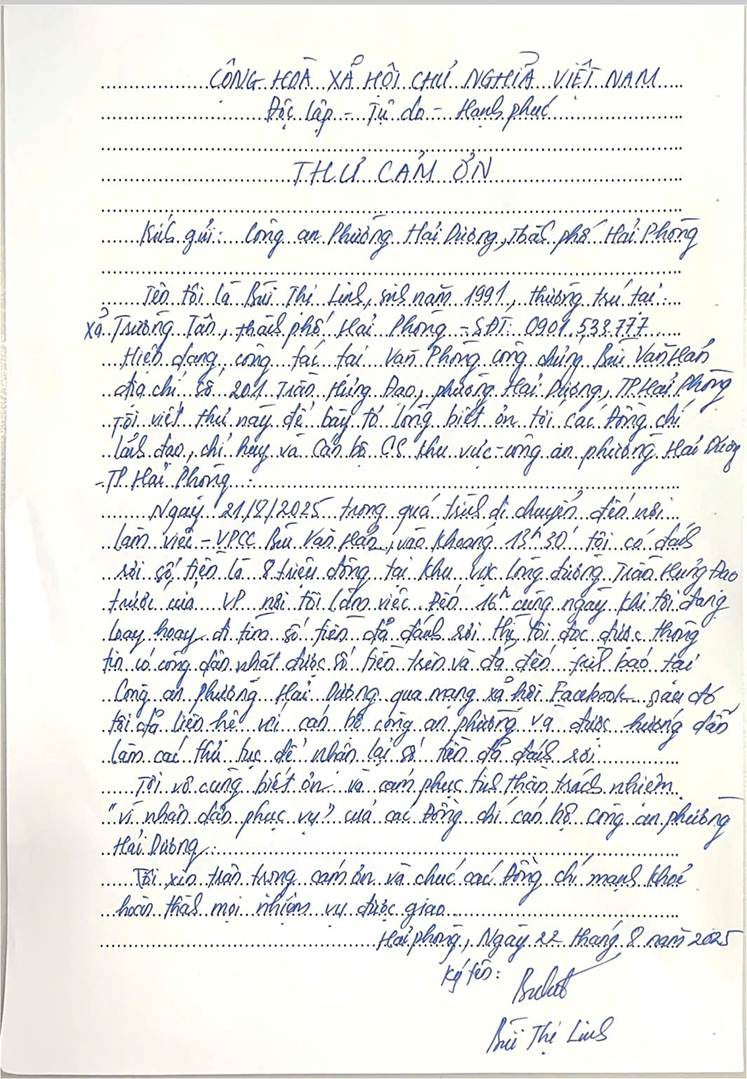 CỘNG HOÀ XÃ HỘI CHỦ NGHĨA VIỆT NAM
Độc lập - Tự do - Hạnh phúc
THƯ CẢM ƠN
Kính gửi: Công an Phường Hải Dương, thành phố Hải Phòng
Tên tôi là Bùi Thị Linh, sinh năm 1991, thường trú tại:
xã Trường Tân, thành phố Hải Phòng - SĐT: 0901.538.777
Hiện đang công tác tại Văn Phòng công chứng Bùi Văn Hấn
địa chỉ số 201 Trần Hưng Đạo, phường Hải Dương, TP Hải Phòng
Tôi viết thư này để bày tỏ lòng biết ơn tới các Đồng chí
lãnh đạo, chỉ huy và Cán bộ CS khu vực - công an phường Hải Dương
- TP Hải Phòng.
Ngày 21/8/2025 trong quá trình di chuyển đến nơi
làm việc - VPCC Bùi Văn Hấn, vào khoảng 13h30' tôi có đánh
rơi số tiền là 8 triệu đồng tại khu vực lòng đường Trần Hưng Đạo
trước cửa VP nơi tôi làm việc. Đến 16h cùng ngày khi tôi đang
loay hoay đi tìm số tiền đã đánh rơi thì tôi đọc được thông
tin có công dân nhặt được số tiền trên và đã đến trình báo tại
Công an phường Hải Dương qua mạng xã hội Facebook. sau đó
tôi đã liên hệ với cán bộ công an phường và được hướng dẫn
làm các thủ tục để nhận lại số tiền đã đánh rơi.
Tôi vô cùng biết ơn và cảm phục tinh thần trách nhiệm
"vì nhân dân phục vụ" của các Đồng chí cán bộ công an phường
Hải Dương.
Tôi xin trân trọng cảm ơn và chúc các Đồng chí mạnh khoẻ
hoàn thành mọi nhiệm vụ được giao
Hải phòng, Ngày 22 tháng 8 năm 2025
Ký tên:
Bùi Thị Linh